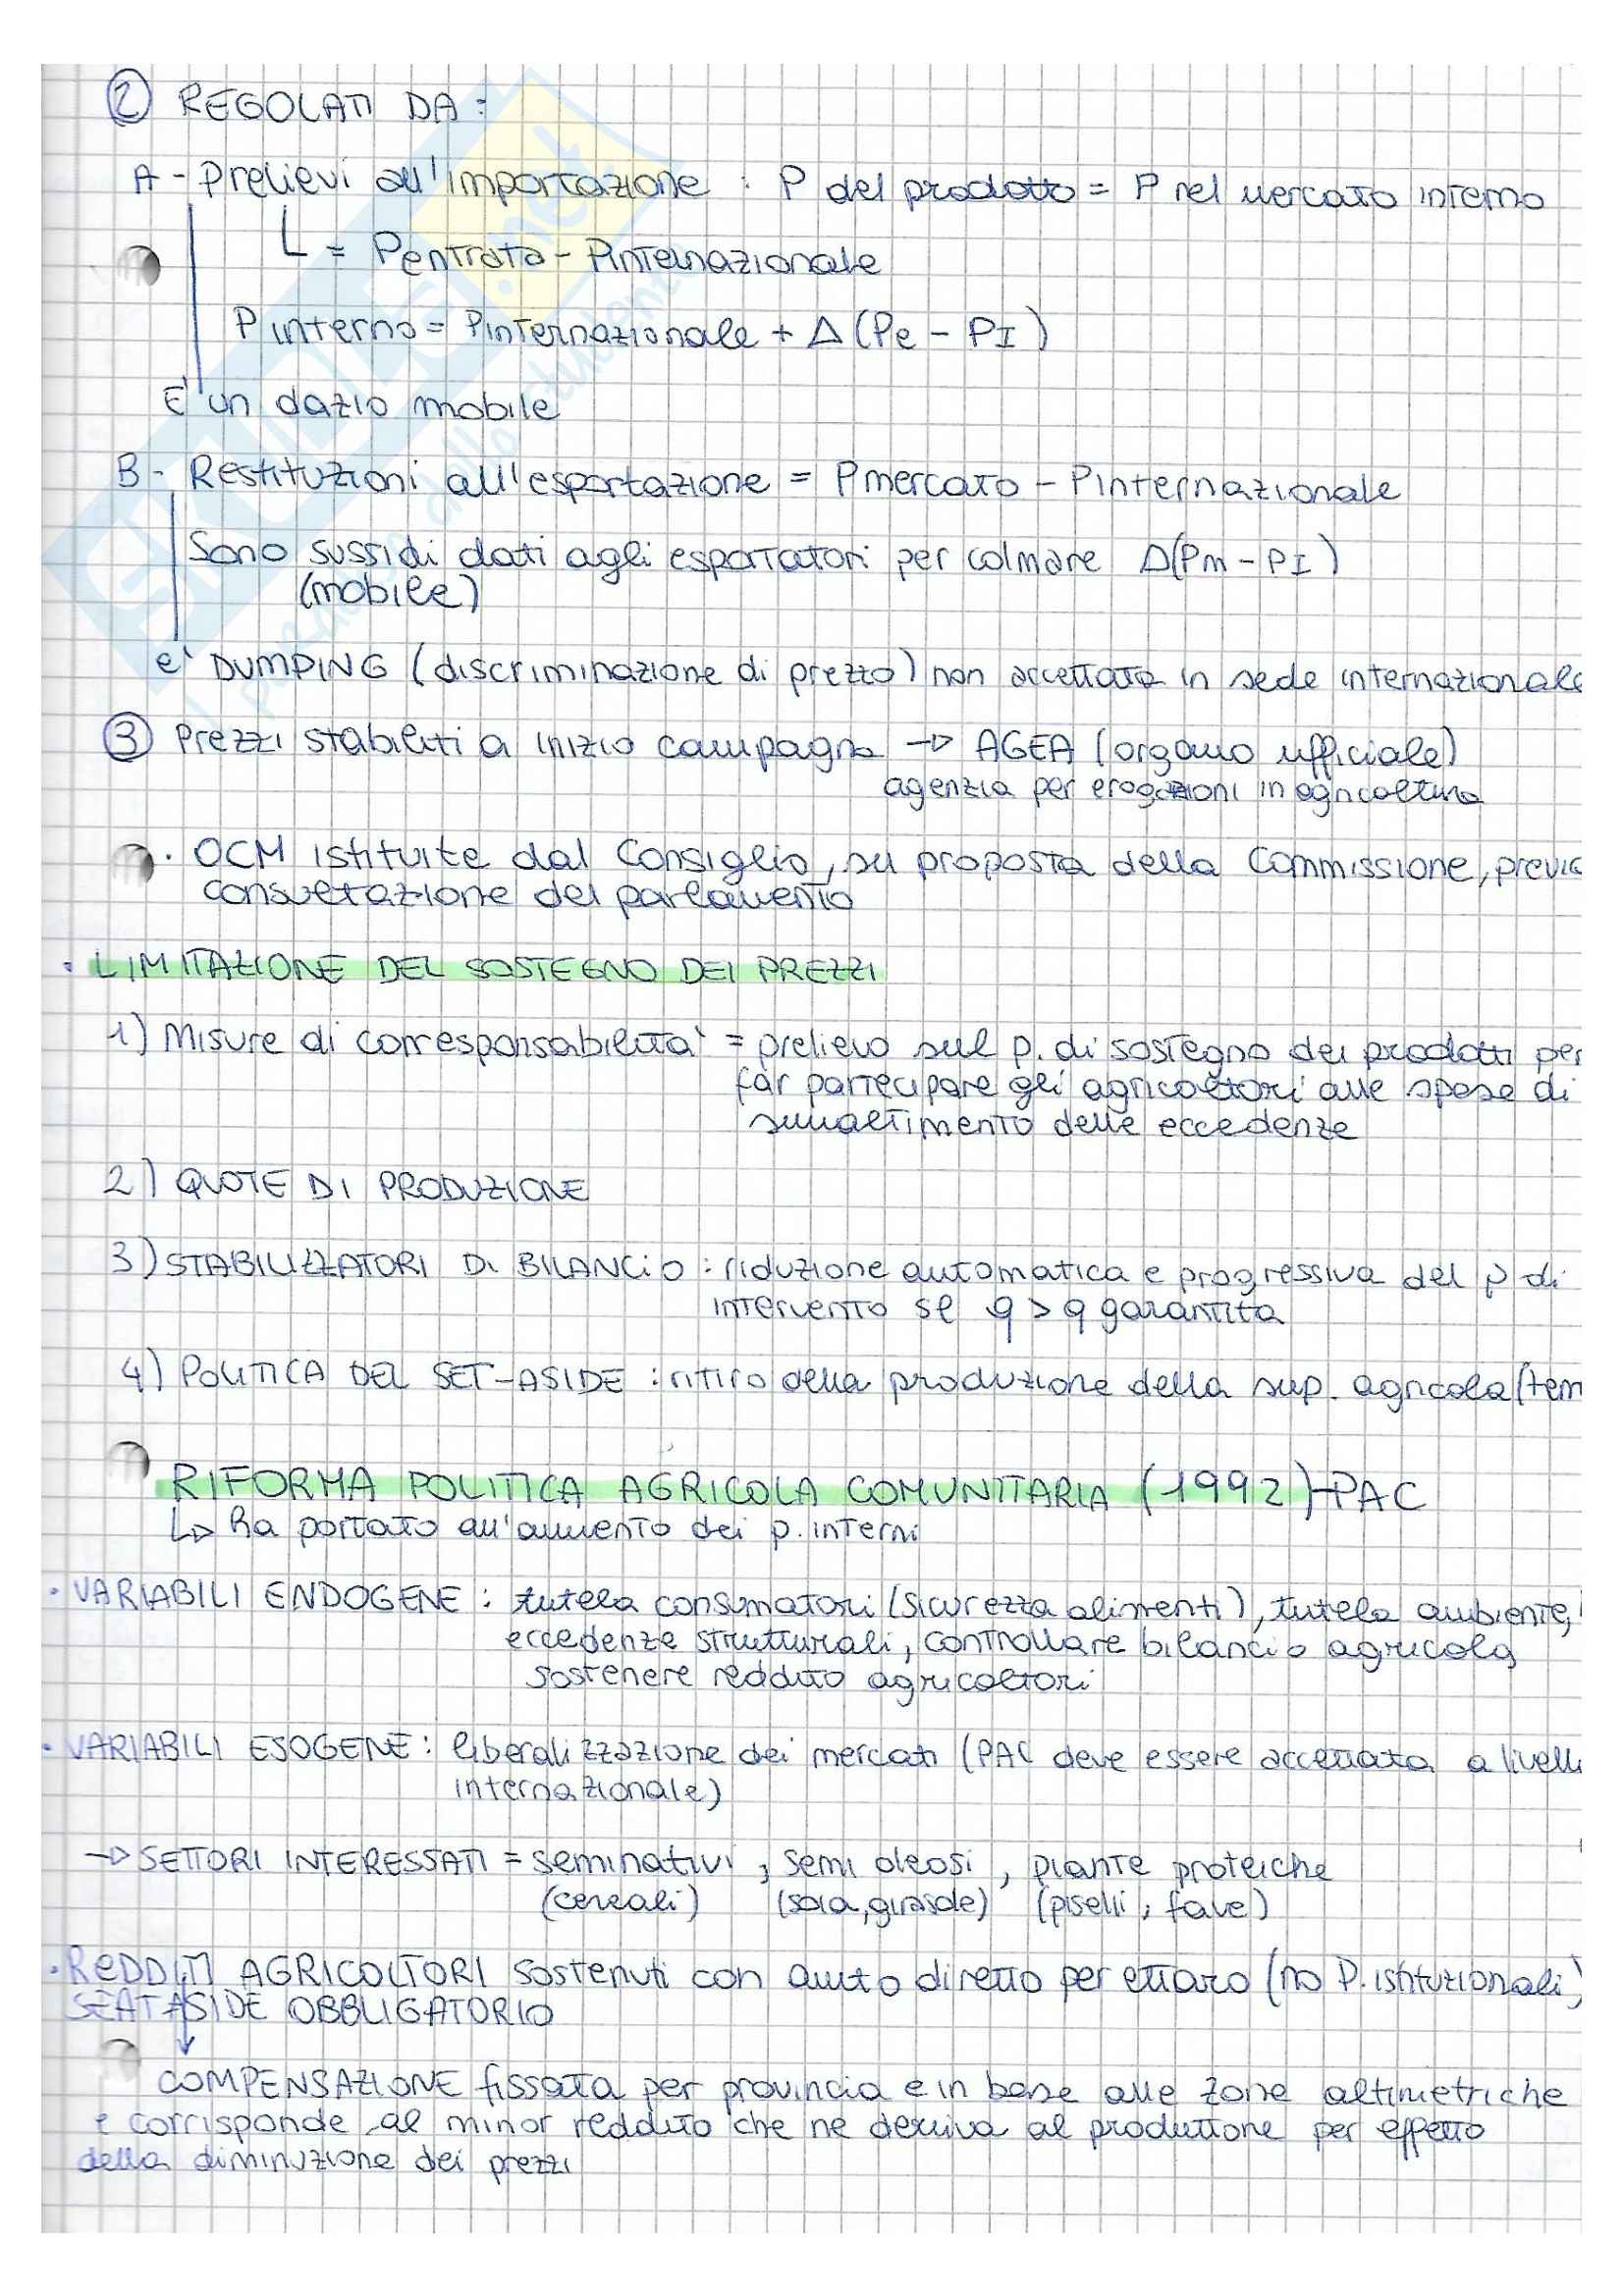 ② REGOLATI DA:
A - Prelievi all'importazione : P del prodotto = P nel mercato interno
L = Pentrata - Pinternazionale
P interno = Pinternazionale + Δ (Pe - PI)
E' un dazio mobile
B - Restituzioni all'esportazione = Pmercato - Pinternazionale
Sono sussidi dati agli esportatori per colmare Δ(Pm - PI)
(mobile)
e' DUMPING (discriminazione di prezzo) non accettata in sede internazionale
③ Prezzi stabiliti a inizio campagna → AGEA (organo ufficiale)
agenzia per erogazioni in agricoltura
· OCM istituite dal Consiglio, su proposta della Commissione, previa
consultazione del parlamento
· LIMITAZIONE DEL SOSTEGNO DEI PREZZI
1) Misure di corresponsabilità = prelievo sul p. di sostegno dei prodotti per
far partecipare gli agricoltori alle spese di
smaltimento delle eccedenze
2) QUOTE DI PRODUZIONE
3) STABILIZZATORI DI BILANCIO : riduzione automatica e progressiva del p di
intervento se q > q garantita
4) POLITICA DEL SET-ASIDE : ritiro della produzione della sup. agricola (tem
RIFORMA POLITICA AGRICOLA COMUNITARIA (1992)-PAC
↳ ha portato all'aumento dei p. interni
· VARIABILI ENDOGENE : tutela consumatori (sicurezza alimenti), tutela ambiente,
eccedenze strutturali, controllare bilancio agricolo
sostenere reddito agricoltori
· VARIABILI ESOGENE : liberalizzazione dei mercati (PAC deve essere accettata a livell
internazionale)
→ SETTORI INTERESSATI = seminativi, semi oleosi, piante proteiche
(cereali) (soia, girasole) (piselli, fave)
· REDDITI AGRICOLTORI sostenuti con aiuto diretto per ettaro (no P. istituzionali)
SEATASIDE OBBLIGATORIO
COMPENSAZIONE fissata per provincia e in base alle zone altimetriche
e corrisponde al minor reddito che ne deriva al produttore per effetto
della diminuzione dei prezzi